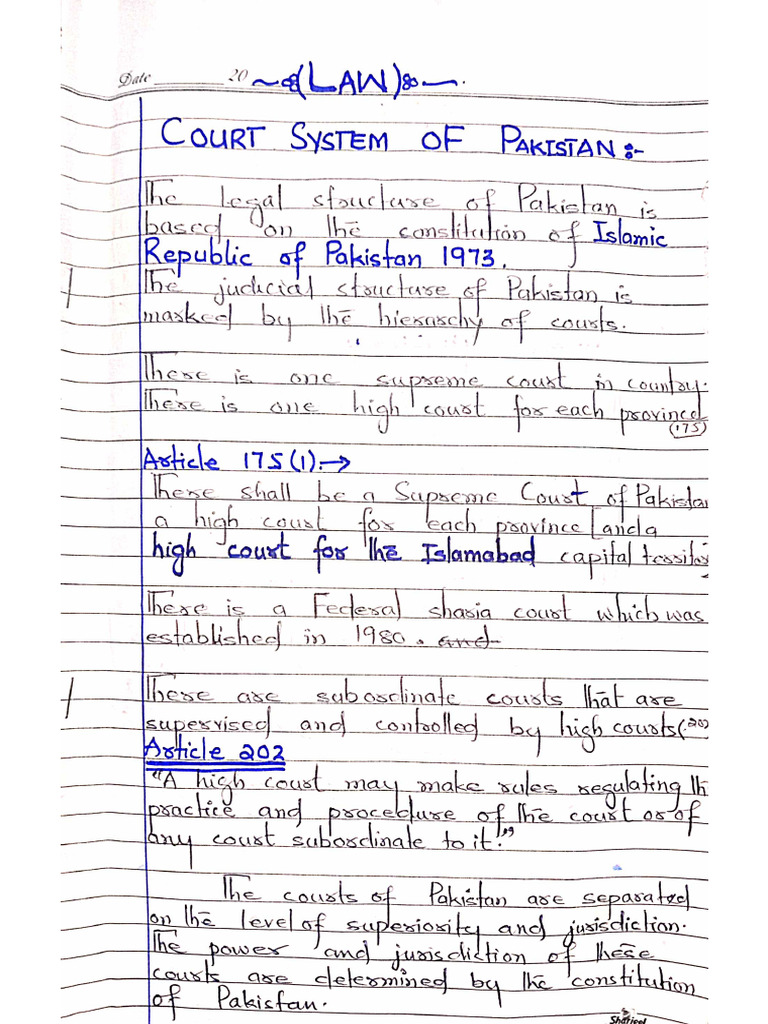 Date 20 ~(LAW)~.
COURT SYSTEM OF PAKISTAN:-
The legal structure of Pakistan is
based on the constitution of Islamic
Republic of Pakistan 1973.
The judicial structure of Pakistan is
marked by the hierarchy of courts.
There is one supreme court in country.
There is one high court for each provinced
(175)
Article 175(1):→
There shall be a Supreme Court of Pakistan
a high court for each province [and a
high court for the Islamabad capital territor
There is a Federal sharia court which was
established in 1980. and
There are subordinate courts that are
supervised and controlled by high courts(202
Article 202
"A high court may make rules regulating th
practice and procedure of the court or of
any court subordinate to it."
The courts of Pakistan are separated
on the level of superiority and jurisdiction.
The power and jurisdiction of these
courts are determined by the constitution
of Pakistan.
Shafeel